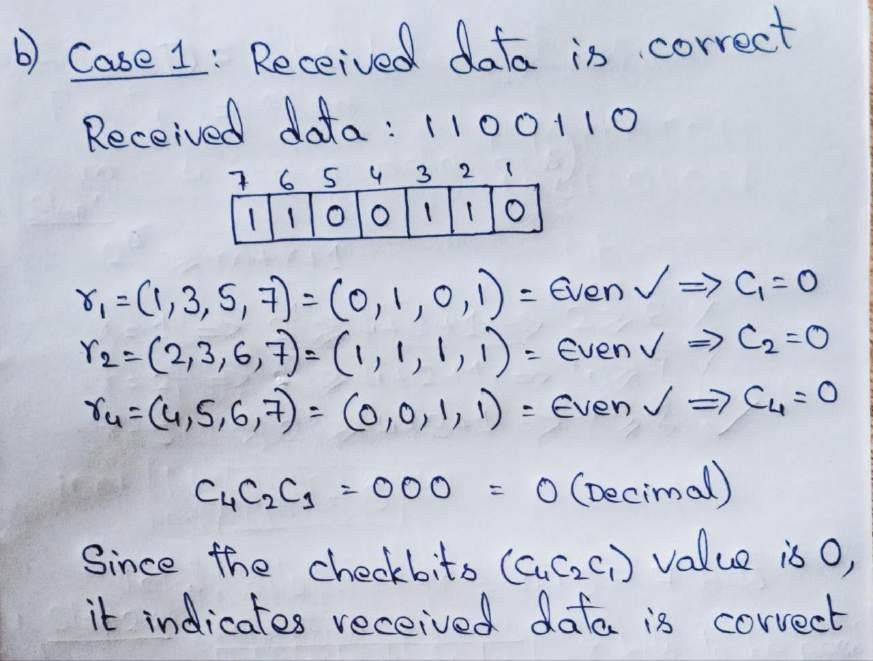 b) Case 1 : Received data is correct
Received data : 1100110
7 6 5 4 3 2 1
1 1 0 0 1 1 0
r₁ = (1, 3, 5, 7) = (0, 1, 0, 1) = Even ✓ => C₁ = 0
r₂ = (2, 3, 6, 7) = (1, 1, 1, 1) = Even ✓ => C₂ = 0
r₄ = (4, 5, 6, 7) = (0, 0, 1, 1) = Even ✓ => C₄ = 0
C₄C₂C₁ = 000 = 0 (Decimal)
Since the checkbits (C₄C₂C₁) value is 0,
it indicates received data is correct